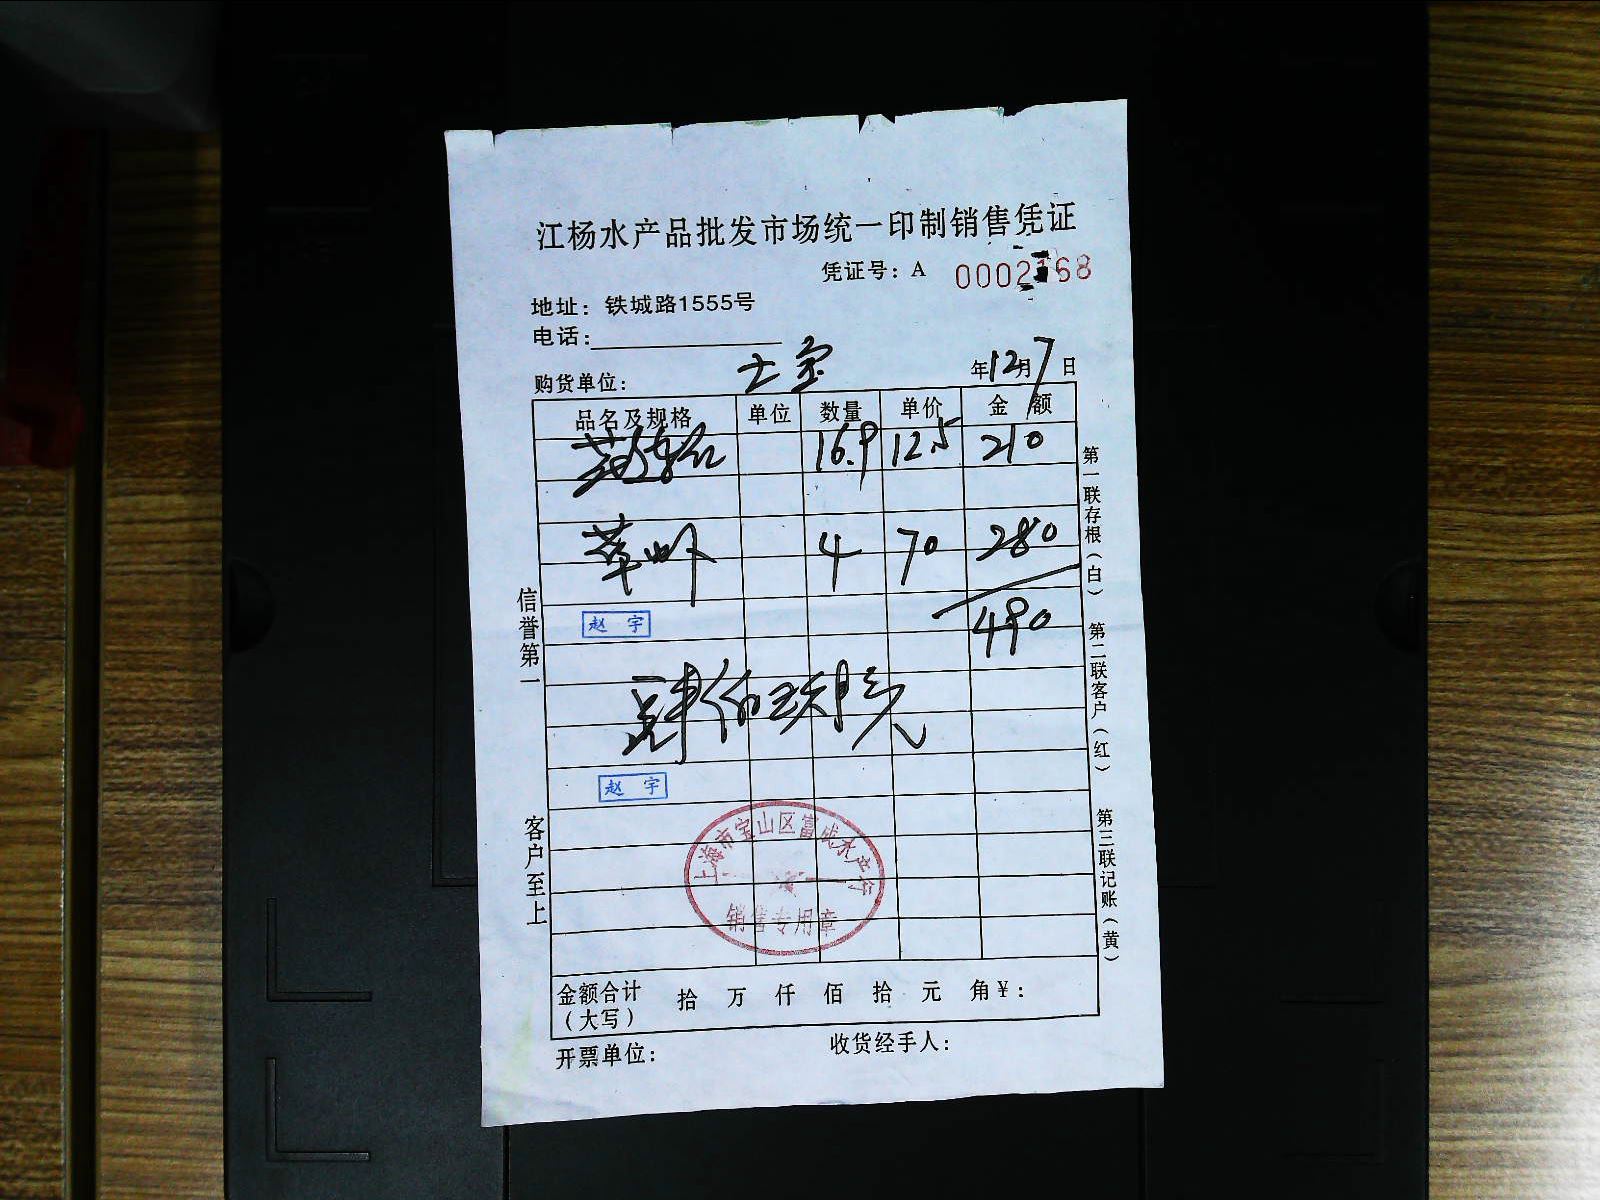 江杨水产品批发市场统一印制销售凭证
凭证号：A 0002168
地址：铁城路1555号
电话：
购货单位： 士宝 年12月7日
品名及规格 单位 数量 单价 金额
16.9 12.5 210
草虾 4 70 280
490
赵宇
肆佰玖拾元
赵宇
上海市宝山区富成水产行
销售专用章
金额合计（大写） 拾 万 仟 佰 拾 元 角￥：
开票单位： 收货经手人：
信誉第一
客户至上
第一联存根（白）
第二联客户（红）
第三联记账（黄）